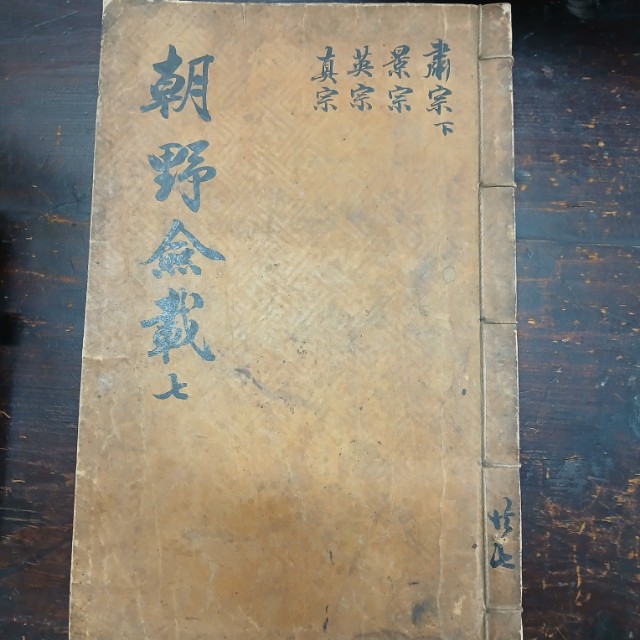 肅宗下
景宗
英宗
真宗
朝野僉載 七
共七